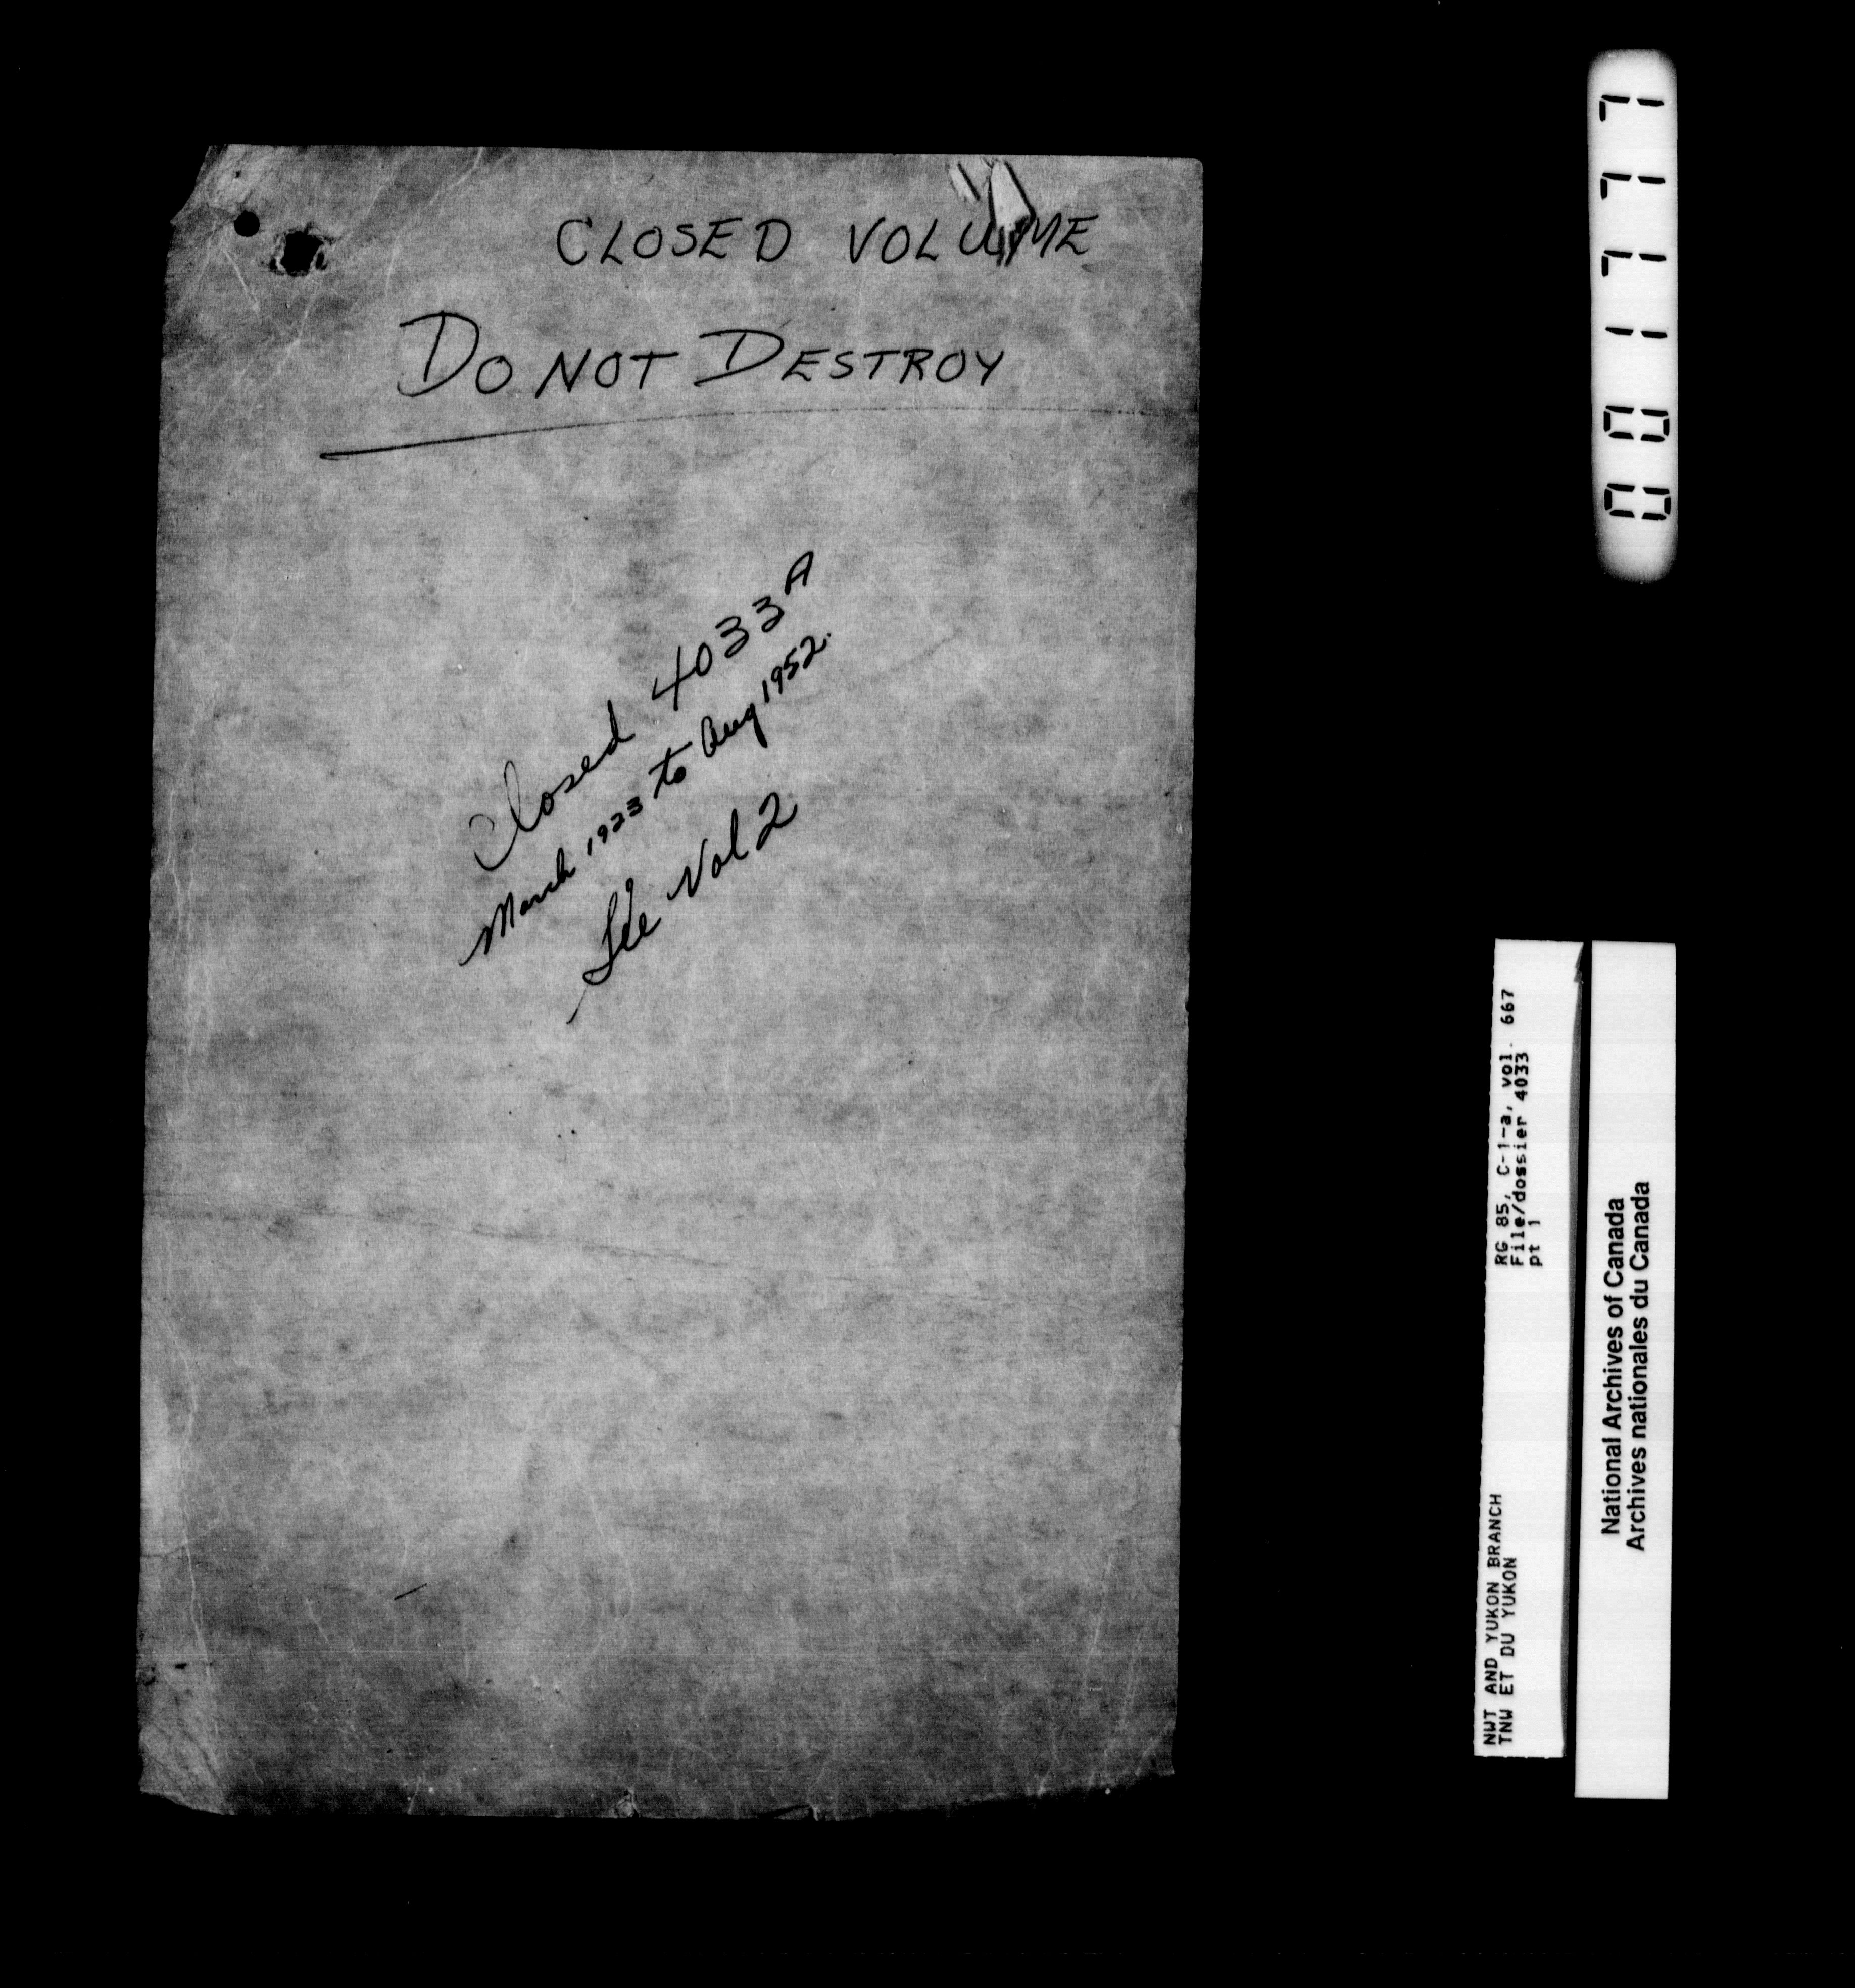 CLOSED VOLUME
DO NOT DESTROY
Closed 4033A
March 1923 to Aug 1952.
See Vol 2
001777
NWT AND YUKON BRANCH RG 85, C-1-a, vol. 667
TNW ET DU YUKON File/dossier 4033
pt 1
National Archives of Canada
Archives nationales du Canada